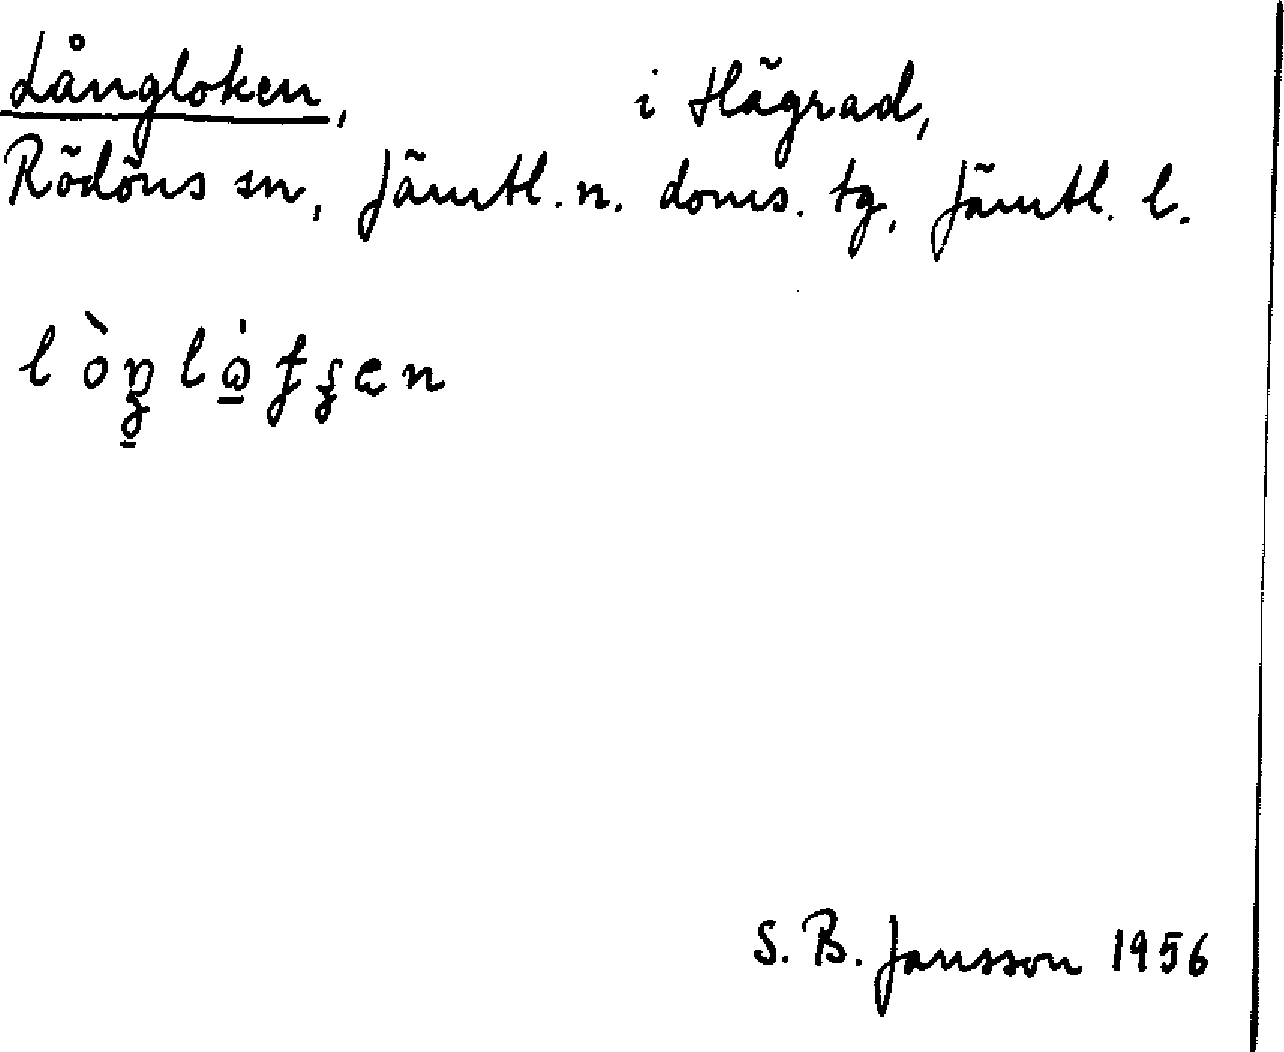 Långloken, i Hägrad,
Rödöns sn, Jämtl. n. doms. tg, Jämtl. l.
S. B. Jansson 1956